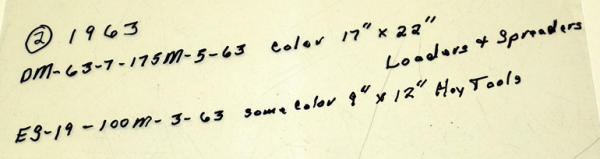 ② 1963
DM-63-7-175M-5-63 color 17" x 22"
Loaders & Spreaders
ES-19-100M-3-63 some color 9" x 12" Hay Tools